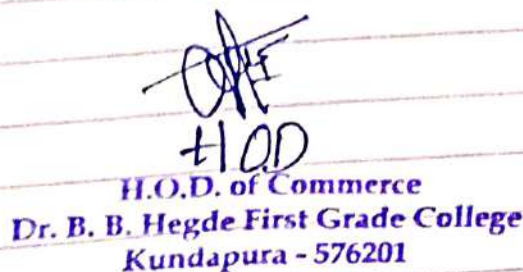 H.O.D
H.O.D. of Commerce
Dr. B. B. Hegde First Grade College
Kundapura - 576201